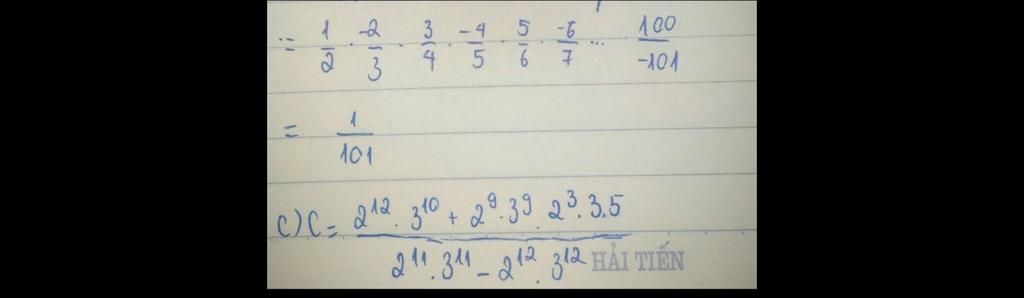 = 1/2 · -2/3 · 3/4 · -4/5 · 5/6 · -6/7 ... 100/-101
= 1/101
c) C = (2^12 · 3^10 + 2^9 · 3^9 · 2^3 · 3 · 5)/(2^11 · 3^11 - 2^12 · 3^12)
HẢI TIẾN